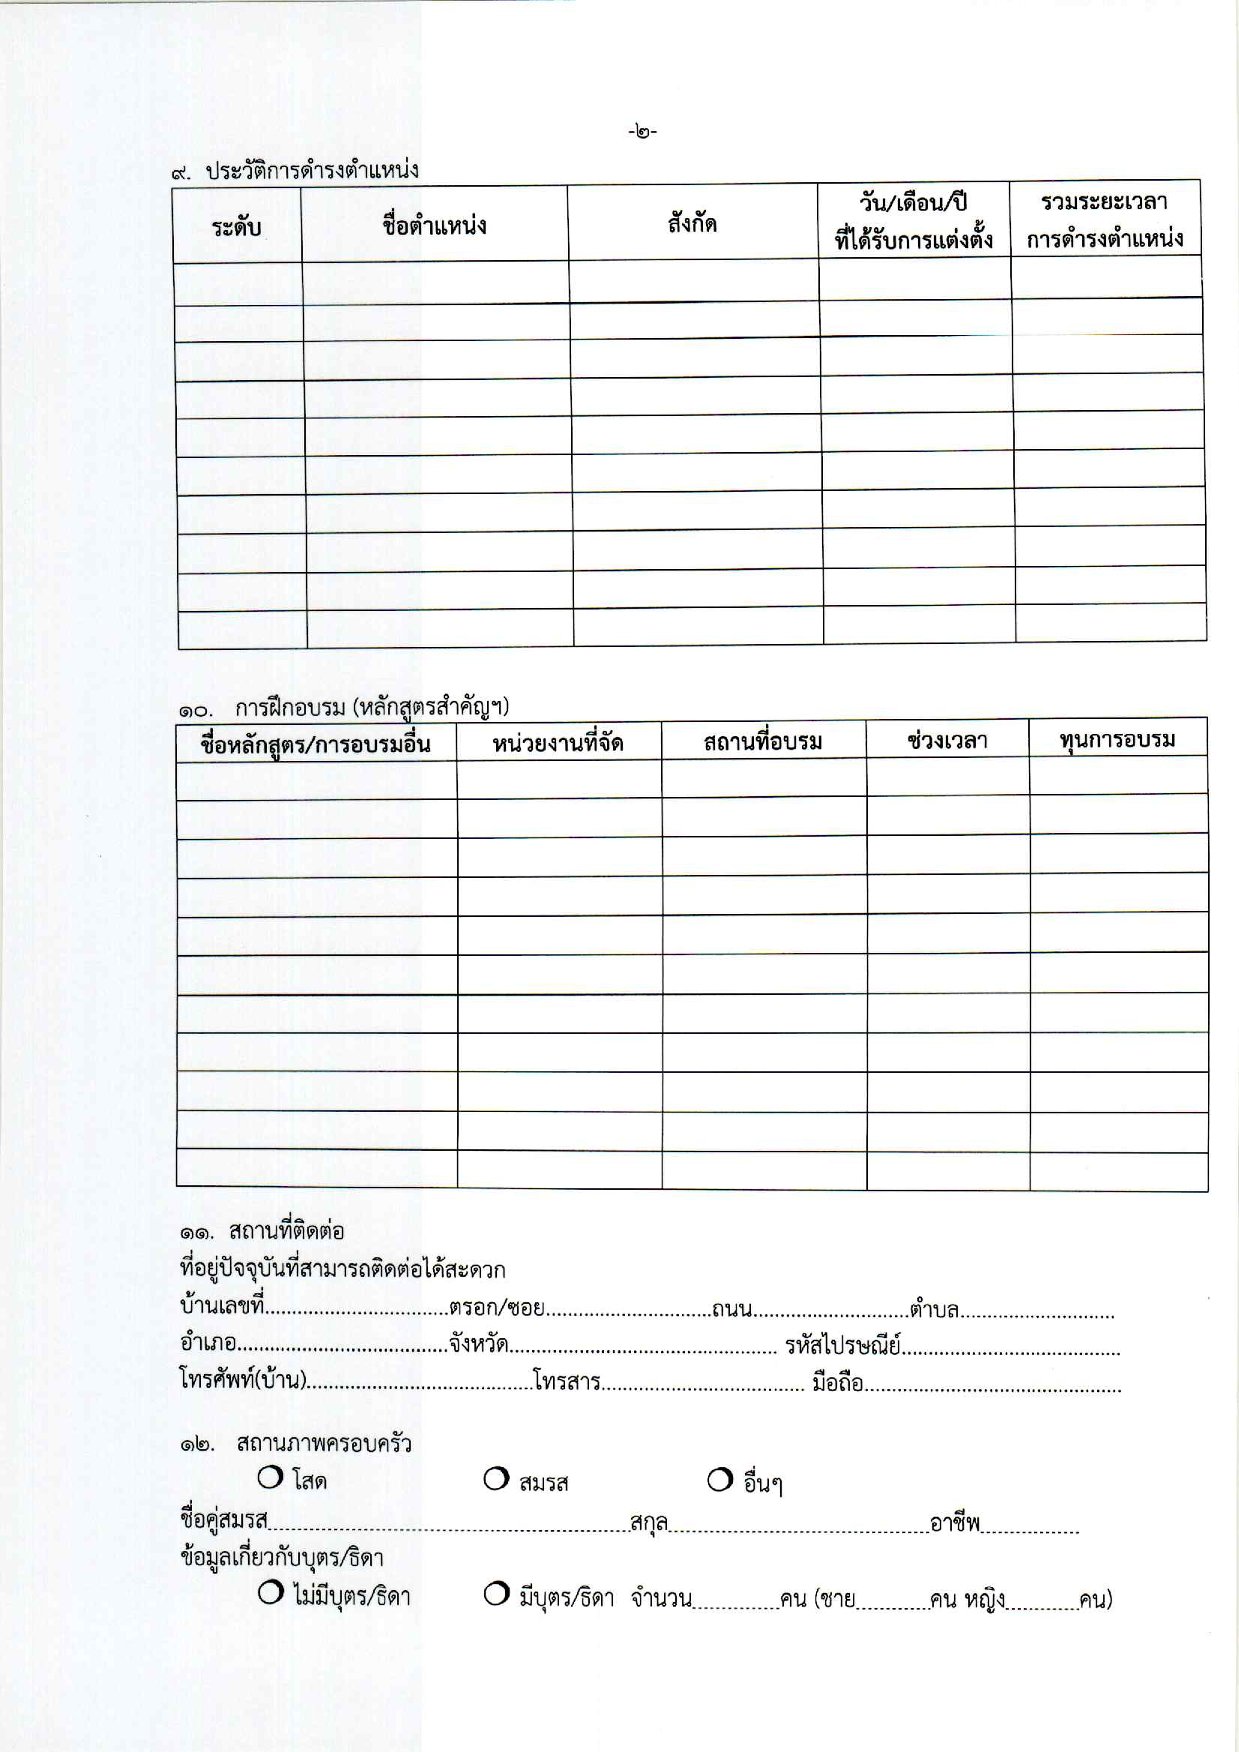 -๒-
๙. ประวัติการดำรงตำแหน่ง
ระดับ ชื่อตำแหน่ง สังกัด วัน/เดือน/ปี ที่ได้รับการแต่งตั้ง รวมระยะเวลา การดำรงตำแหน่ง
๑๐. การฝึกอบรม (หลักสูตรสำคัญฯ)
ชื่อหลักสูตร/การอบรมอื่น หน่วยงานที่จัด สถานที่อบรม ช่วงเวลา ทุนการอบรม
๑๑. สถานที่ติดต่อ
ที่อยู่ปัจจุบันที่สามารถติดต่อได้สะดวก
บ้านเลขที่..................................ตรอก/ซอย..............................ถนน.............................ตำบล............................
อำเภอ.......................................จังหวัด................................................. รหัสไปรษณีย์........................................
โทรศัพท์(บ้าน)..........................................โทรสาร..................................... มือถือ...............................................
๑๒. สถานภาพครอบครัว
โสด สมรส อื่นๆ
ชื่อคู่สมรส..................................................................สกุล................................................อาชีพ..................
ข้อมูลเกี่ยวกับบุตร/ธิดา
ไม่มีบุตร/ธิดา มีบุตร/ธิดา จำนวน................คน (ชาย..............คน หญิง..............คน)